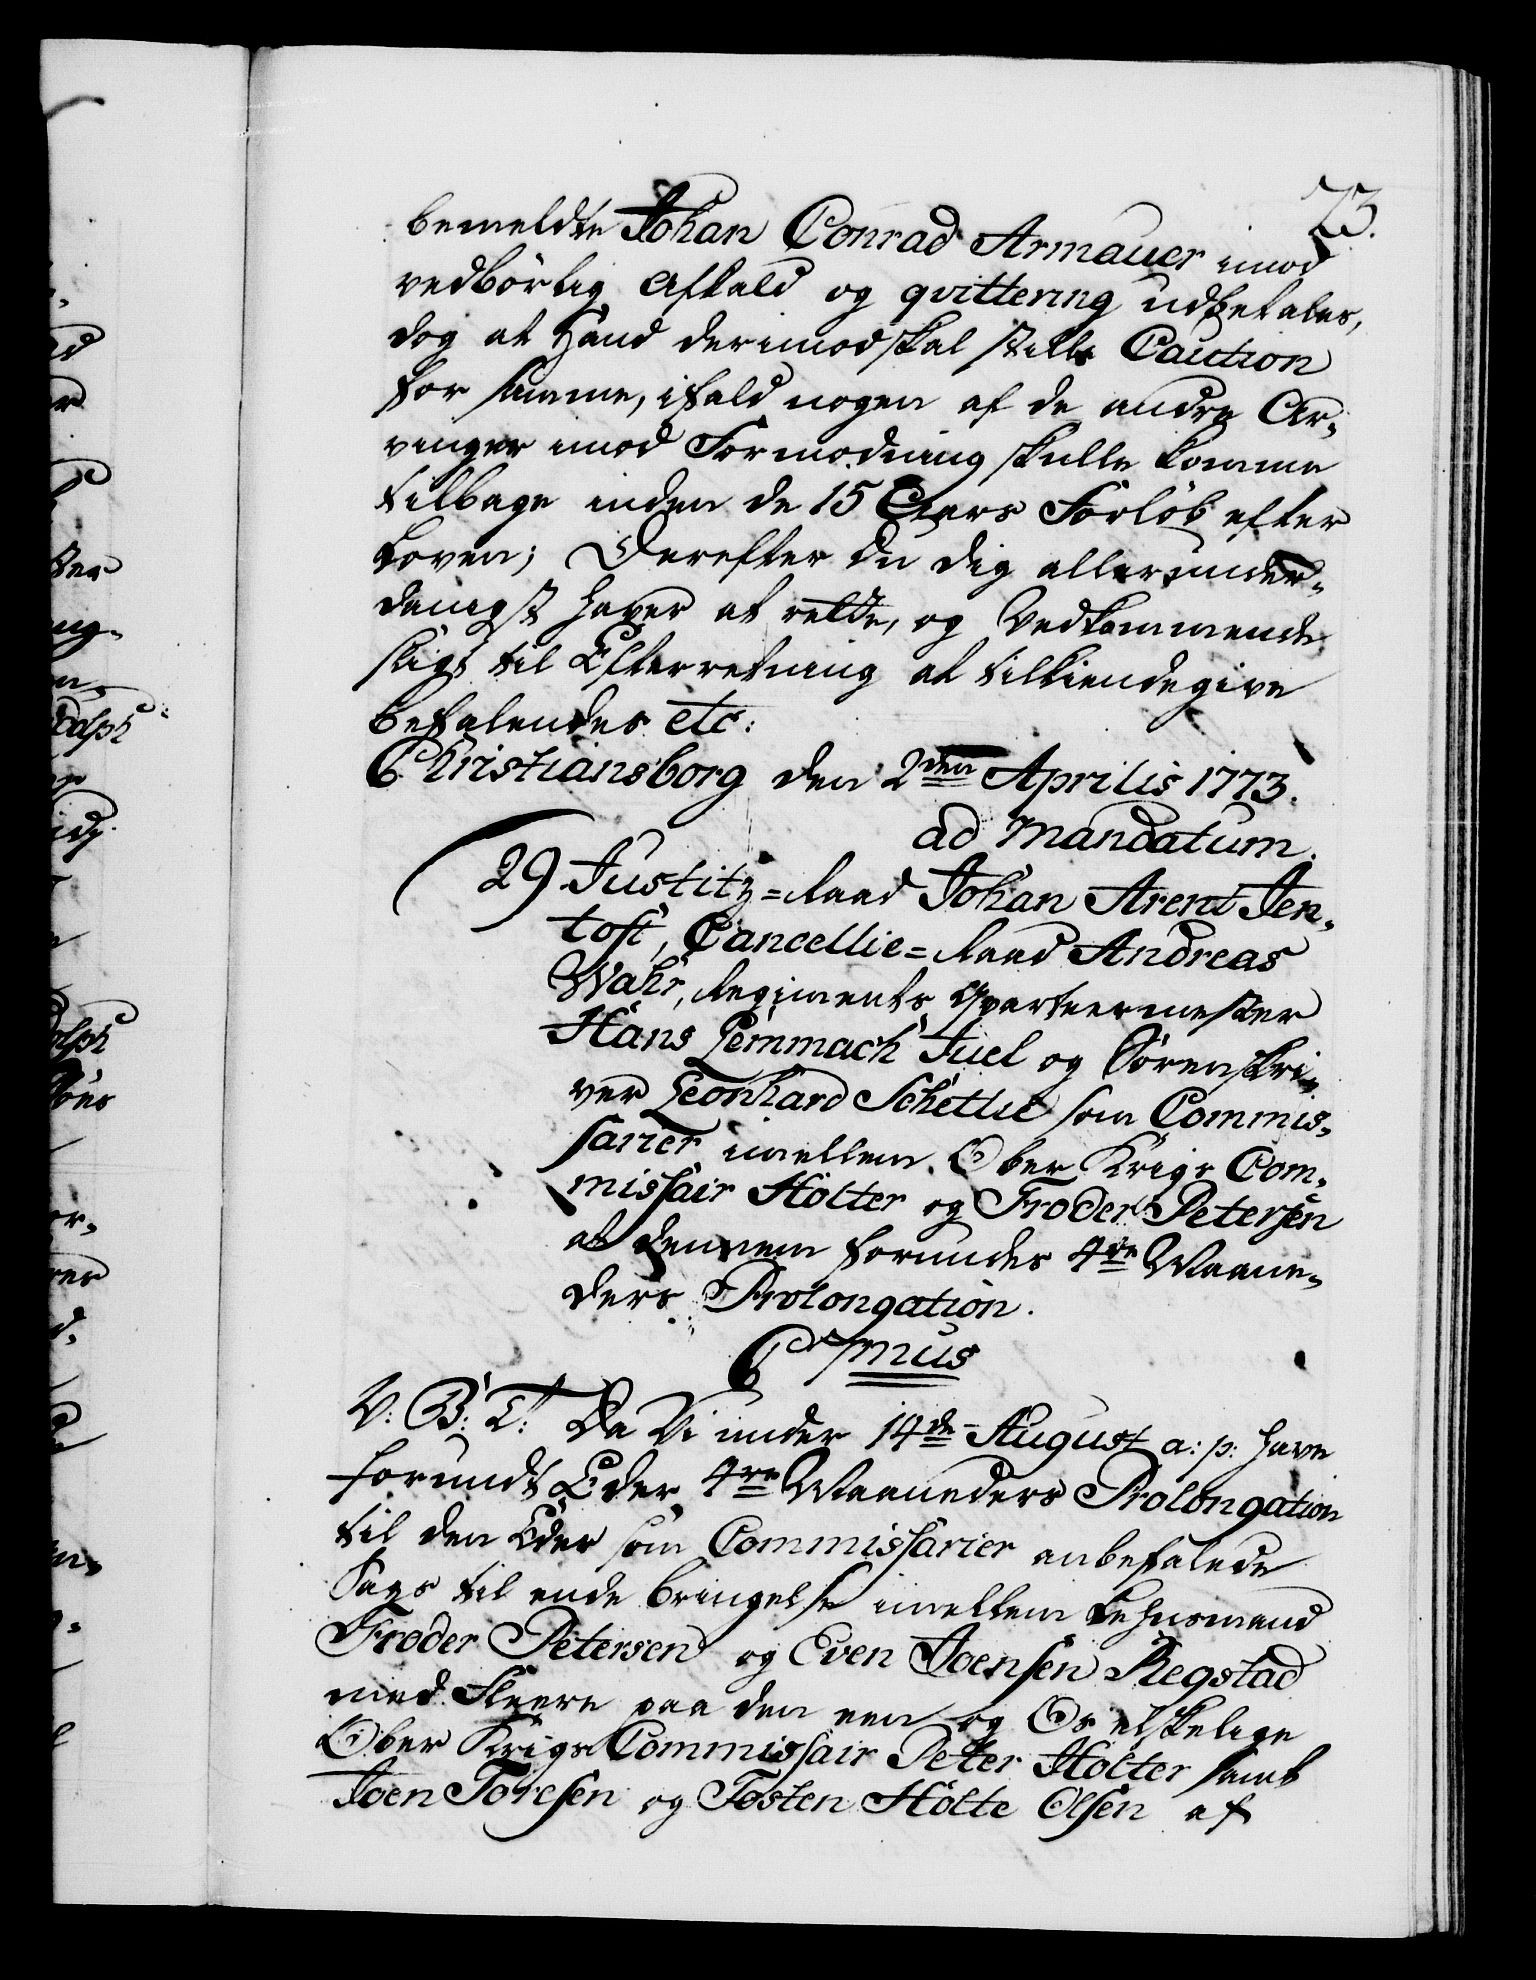 73.
bemeldte Johan Conrad Armauer imod
vedbörlig Afkald og qvittering udbetales,
dog at Hand derimod skal stille Caution
for samme, ifald nogen af de andre Ar-
vinger imod Formodning skulle komme
tilbage inden de 15 Aars Forlöb efter
Loven; Derefter du dig allerunder-
danigst haver at rette, og Vedkommende
sligt til Efterretning at tilkiendegive
befalendes etc:
Christiansborg den 2den Aprilis 1773.
ad Mandatum.
29 Justitz=Raad Johan Arent Jen-
toft, Cancellie=Raad Andreas
Wahr, Regiments Qvarteermester
Hans Lemmach Juel og Sörenskri-
ver Leonhard Schetlie som Commis-
sarier imellem Ober Krigs Com-
missair Holter og Froder Petersen
at dennem forundes 4re Maane-
ders Prolongation.
C 7mus
V: B: T: Da Vi under 14de August a: p: have
forundt Eder 4re Maaneders Prolongation
til den Eder som Commissarier anbefalede
Sags til ende bringelse imellem Lehnsmand
Froder Petersen og Even Joensen Regstad
med Fleere paa den een og Os elskelige
Ober Krigs Commissair Peter Holter samt
Joen Toresen og Tosten Holte Olsen af